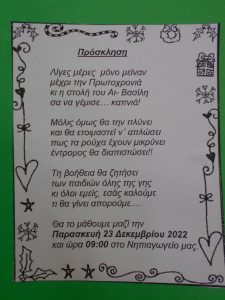 Πρόσκληση
Λίγες μέρες μόνο μείναν
μέχρι την Πρωτοχρονιά
κι η στολή του Αι- Βασίλη
σα να γέμισε… καπνιά!
Μόλις όμως θα την πλύνει
και θα ετοιμαστεί ν΄ απλώσει
πως τα ρούχα έχουν μικρύνει
έντρομος θα διαπιστώσει!!
Τη βοήθεια θα ζητήσει
των παιδιών όλης της γης
κι όλοι εμείς, εσάς καλούμε
τι θα γίνει απορούμε…..
Θα το μάθουμε μαζί την
Παρασκευή 23 Δεκεμβρίου 2022
και ώρα 09:00 στο Νηπιαγωγείο μας